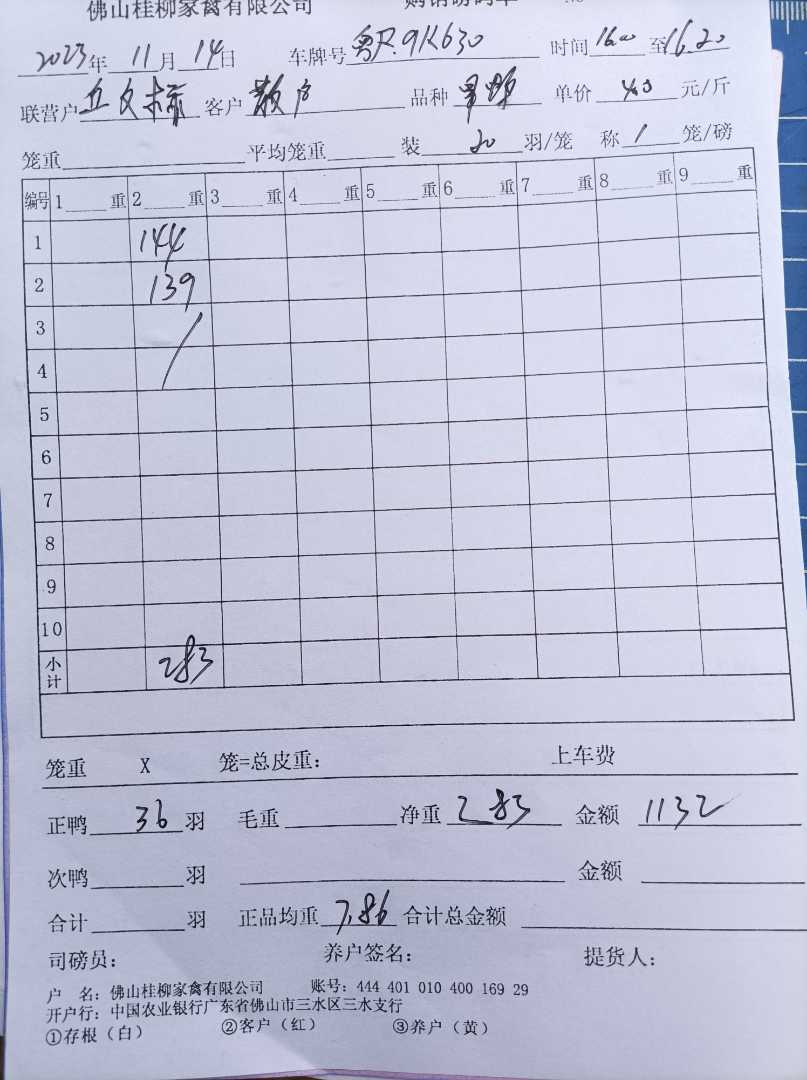 佛山桂柳家禽有限公司 购销磅码单
2023年 11月 14日 车牌号 粤R.9K630 时间 16.00 至 16.20
联营户 丘文標 客户 散户 品种 单价 4.0 元/斤
笼重 平均笼重 装 20 羽/笼 称 1 笼/磅
编号 1 重 2 重 3 重 4 重 5 重 6 重 7 重 8 重 9 重
1 144
2 139
3 /
4
5
6
7
8
9
10
小计 283
笼重 X 笼=总皮重: 上车费
正鸭 36 羽 毛重 净重 283 金额 1132
次鸭 羽 金额
合计 羽 正品均重 7.86 合计总金额
司磅员: 养户签名: 提货人:
户 名: 佛山桂柳家禽有限公司 账号: 444 401 010 400 169 29
开户行: 中国农业银行广东省佛山市三水区三水支行
①存根（白） ②客户（红） ③养户（黄）